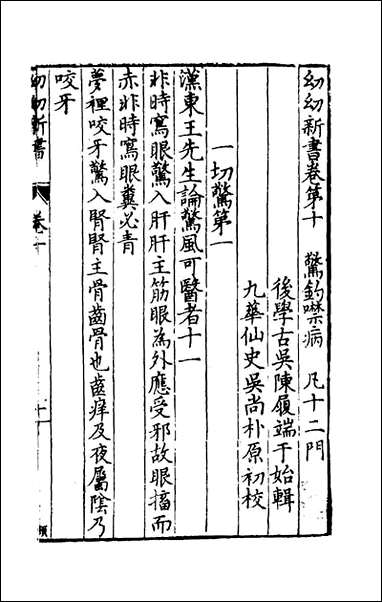 幼幼新書卷第十　驚釣噤病　凡十二門
後學古吳陳履端于始輯
九華仙史吳尚朴原初校
一切驚第一
漢東王先生論驚風可醫者十一
非時寫眼驚入肝肝主筋眼為外應受邪故眼搐而
赤非時寫眼糞必青
夢裡咬牙驚入腎腎主骨齒骨也齒痒及夜屬陰乃
咬牙
幼幼新書　卷十　一